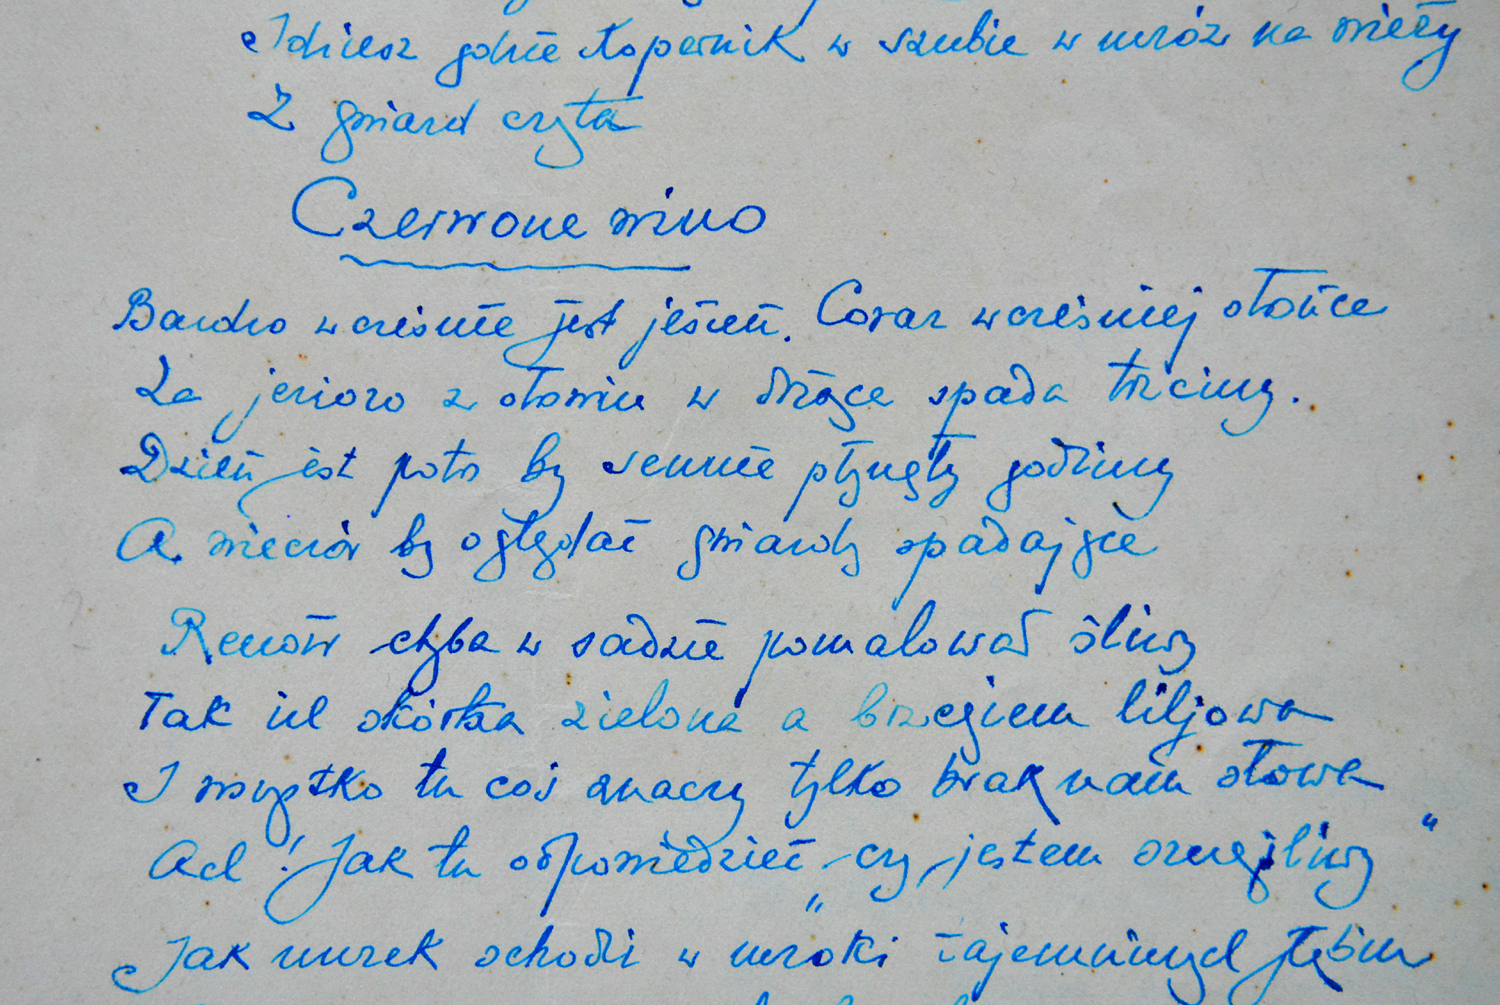 Idziesz gdzie Kopernik w szubie w mróz na wieży
Z gwiazd czyta
Czerwone wino
Bardzo wcześnie jest jesień. Coraz wcześniej słońce
Za jezioro z ołowiu w drżące spada trzciny.
Dzień jest poto by sennie płynęły godziny
A wieczór by oglądać gwiazdy spadające
Renoir chyba w sadzie pomalował śliwy
Tak ich skórka zielona a brzegiem liljowa
I wszystko tu coś znaczy tylko brak nam słowa
Ach! Jak tu odpowiedzieć - czy jestem szczęśliwy"
Jak nurek schodzi w mroki tajemniczych głębin